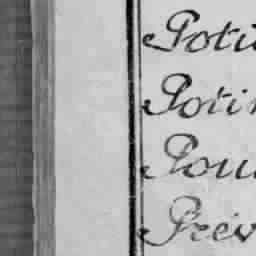 Poti
Potin
Pou
Prév